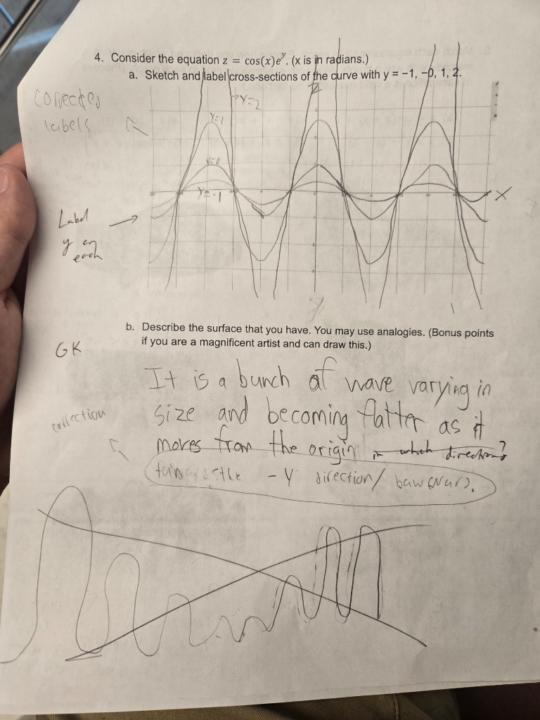 4. Consider the equation z = cos(x)eʸ. (x is in radians.)
a. Sketch and label cross-sections of the curve with y = −1, −0, 1, 2.
corrected
labels
y=2
z
y=1
y=0
y=-1
x
Label
y on
each
b. Describe the surface that you have. You may use analogies. (Bonus points
if you are a magnificent artist and can draw this.)
GK
It is a bunch of wave varying in
size and becoming flatter as it
moves from the origin in which direction?
correction
-y direction/